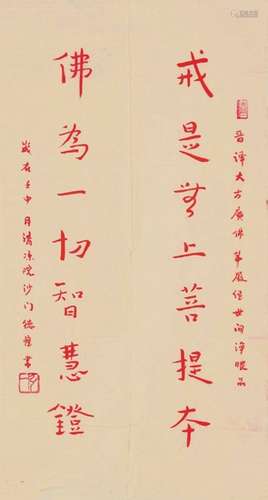 晋译大方广佛华严经世间净眼品
戒是无上菩提本
佛為一切智慧鐙
歲在壬申月清凉院沙门德